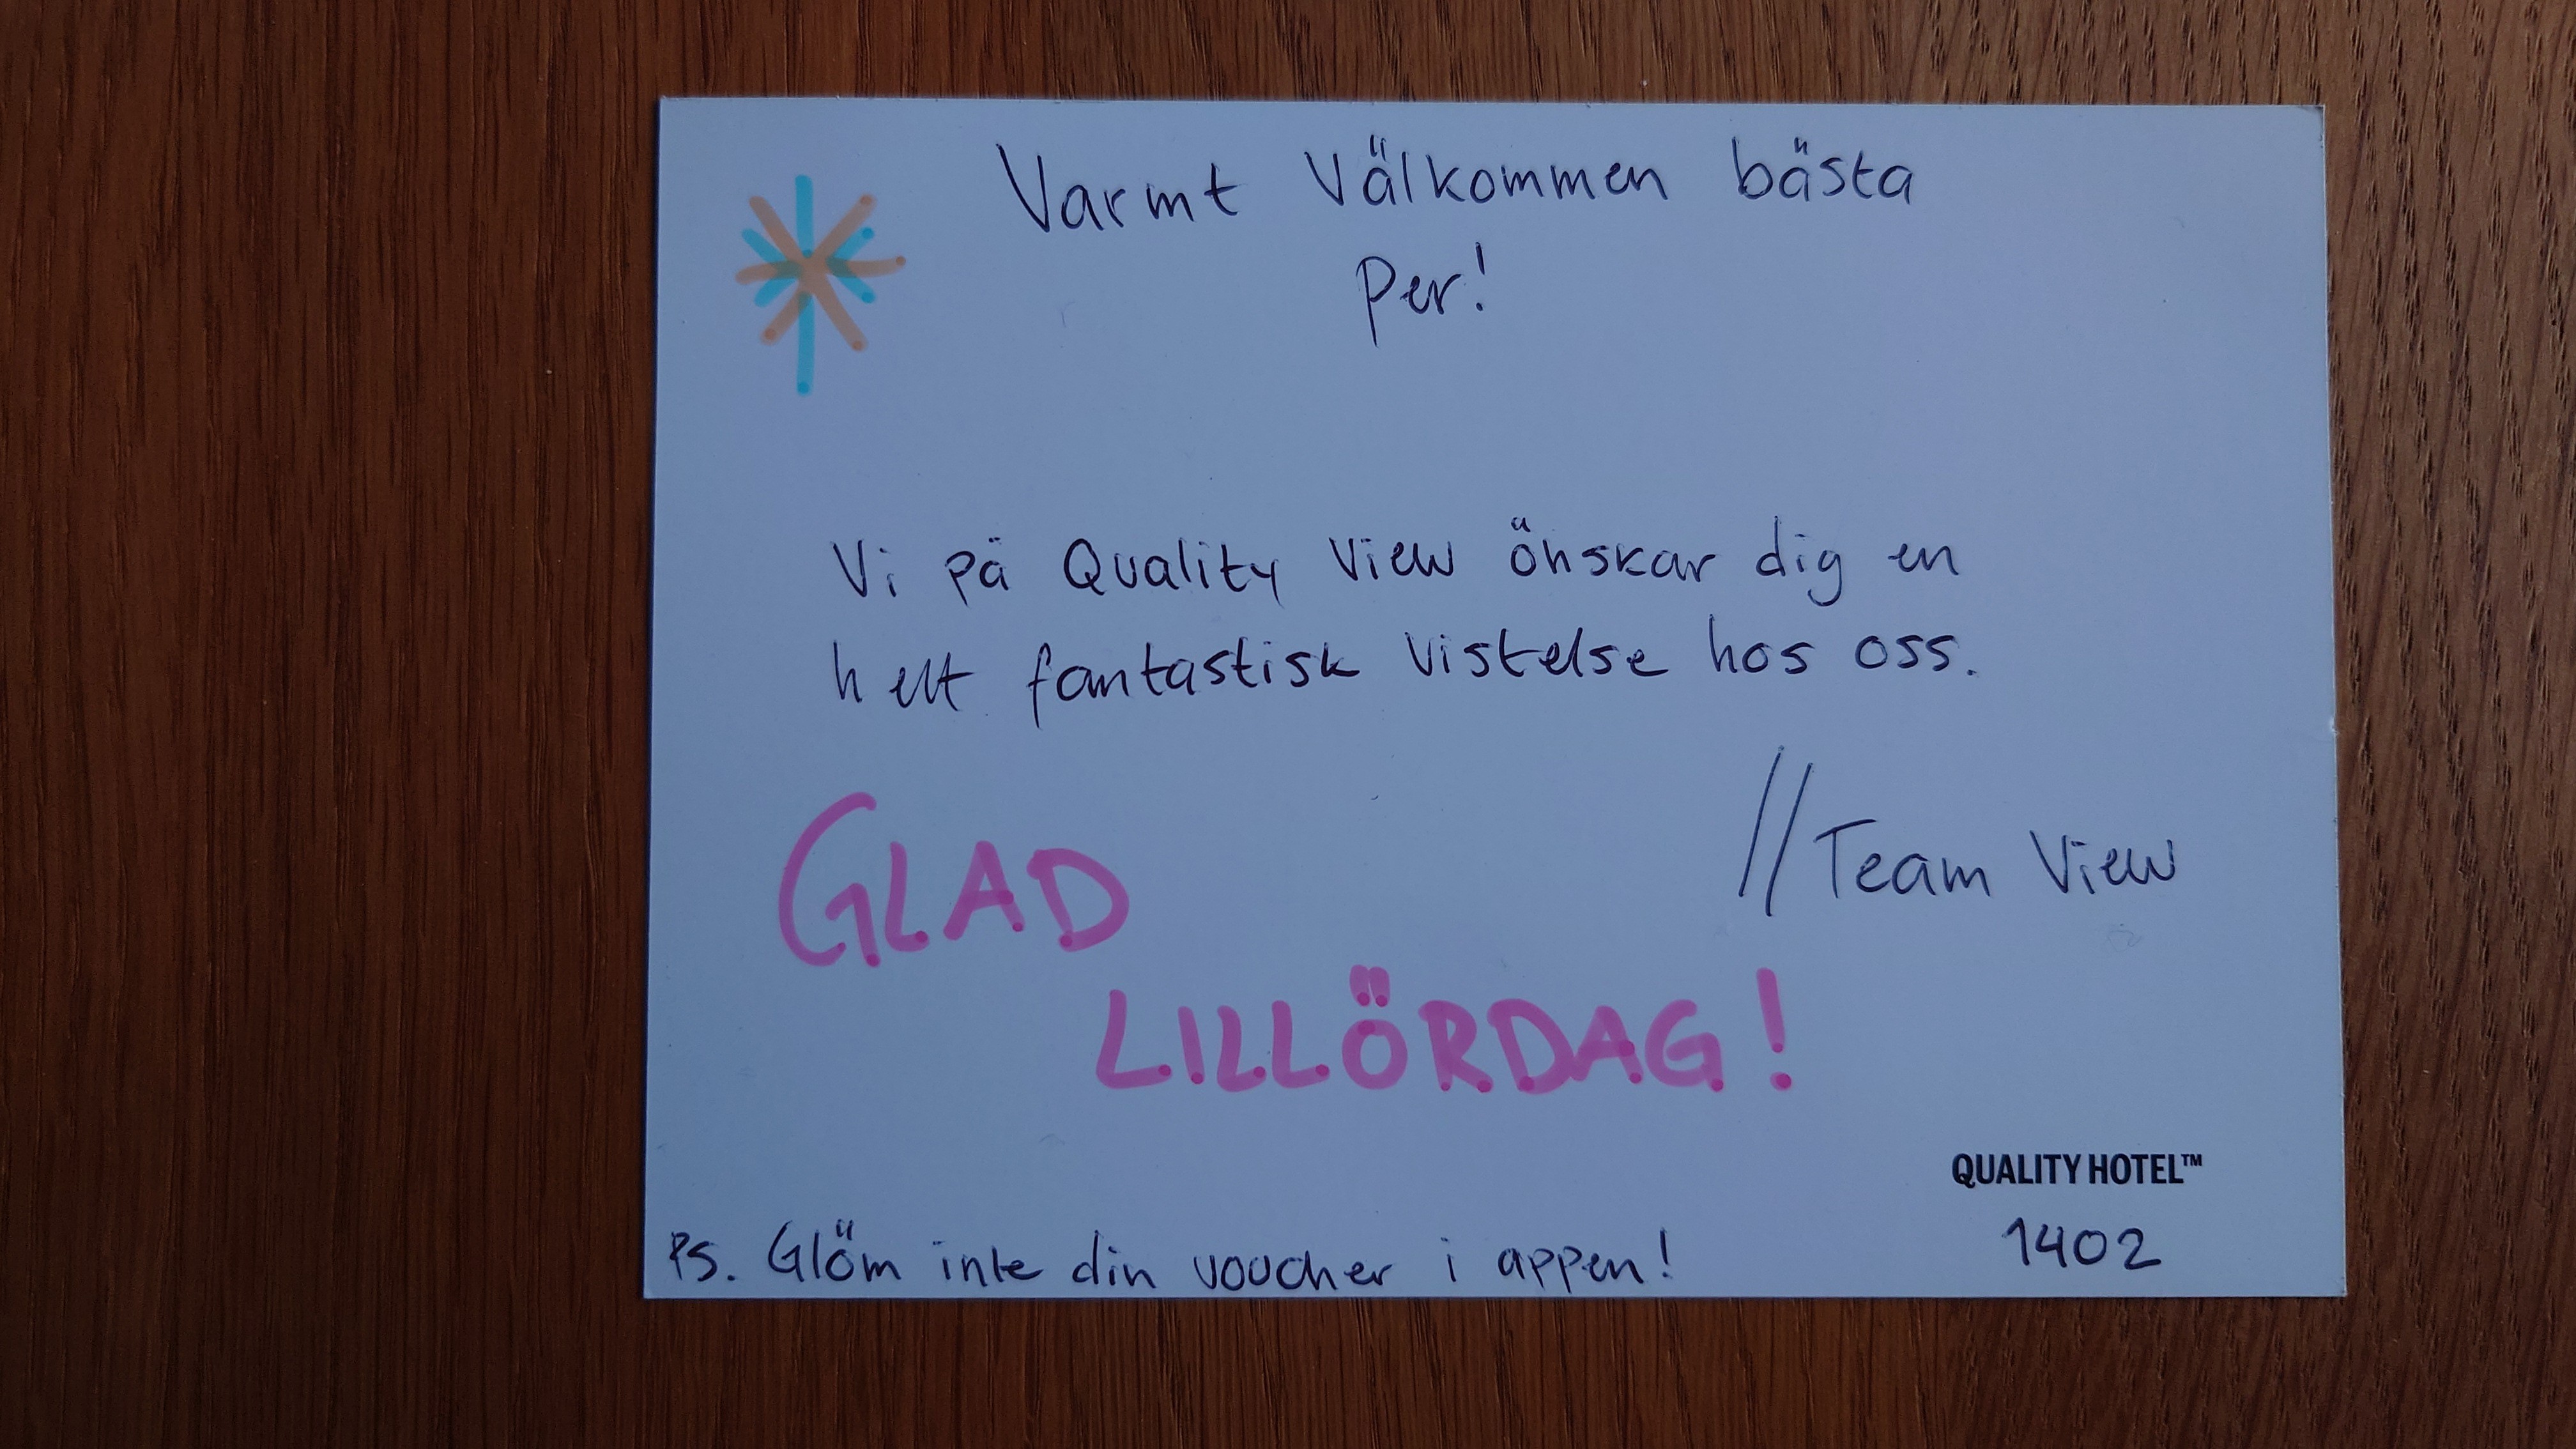 Varmt Välkommen bästa
Per!
Vi på Quality View önskar dig en
helt fantastisk vistelse hos oss.
//Team View
GLAD
LILLÖRDAG!
QUALITY HOTEL™
1402
PS. Glöm inte din voucher i appen!